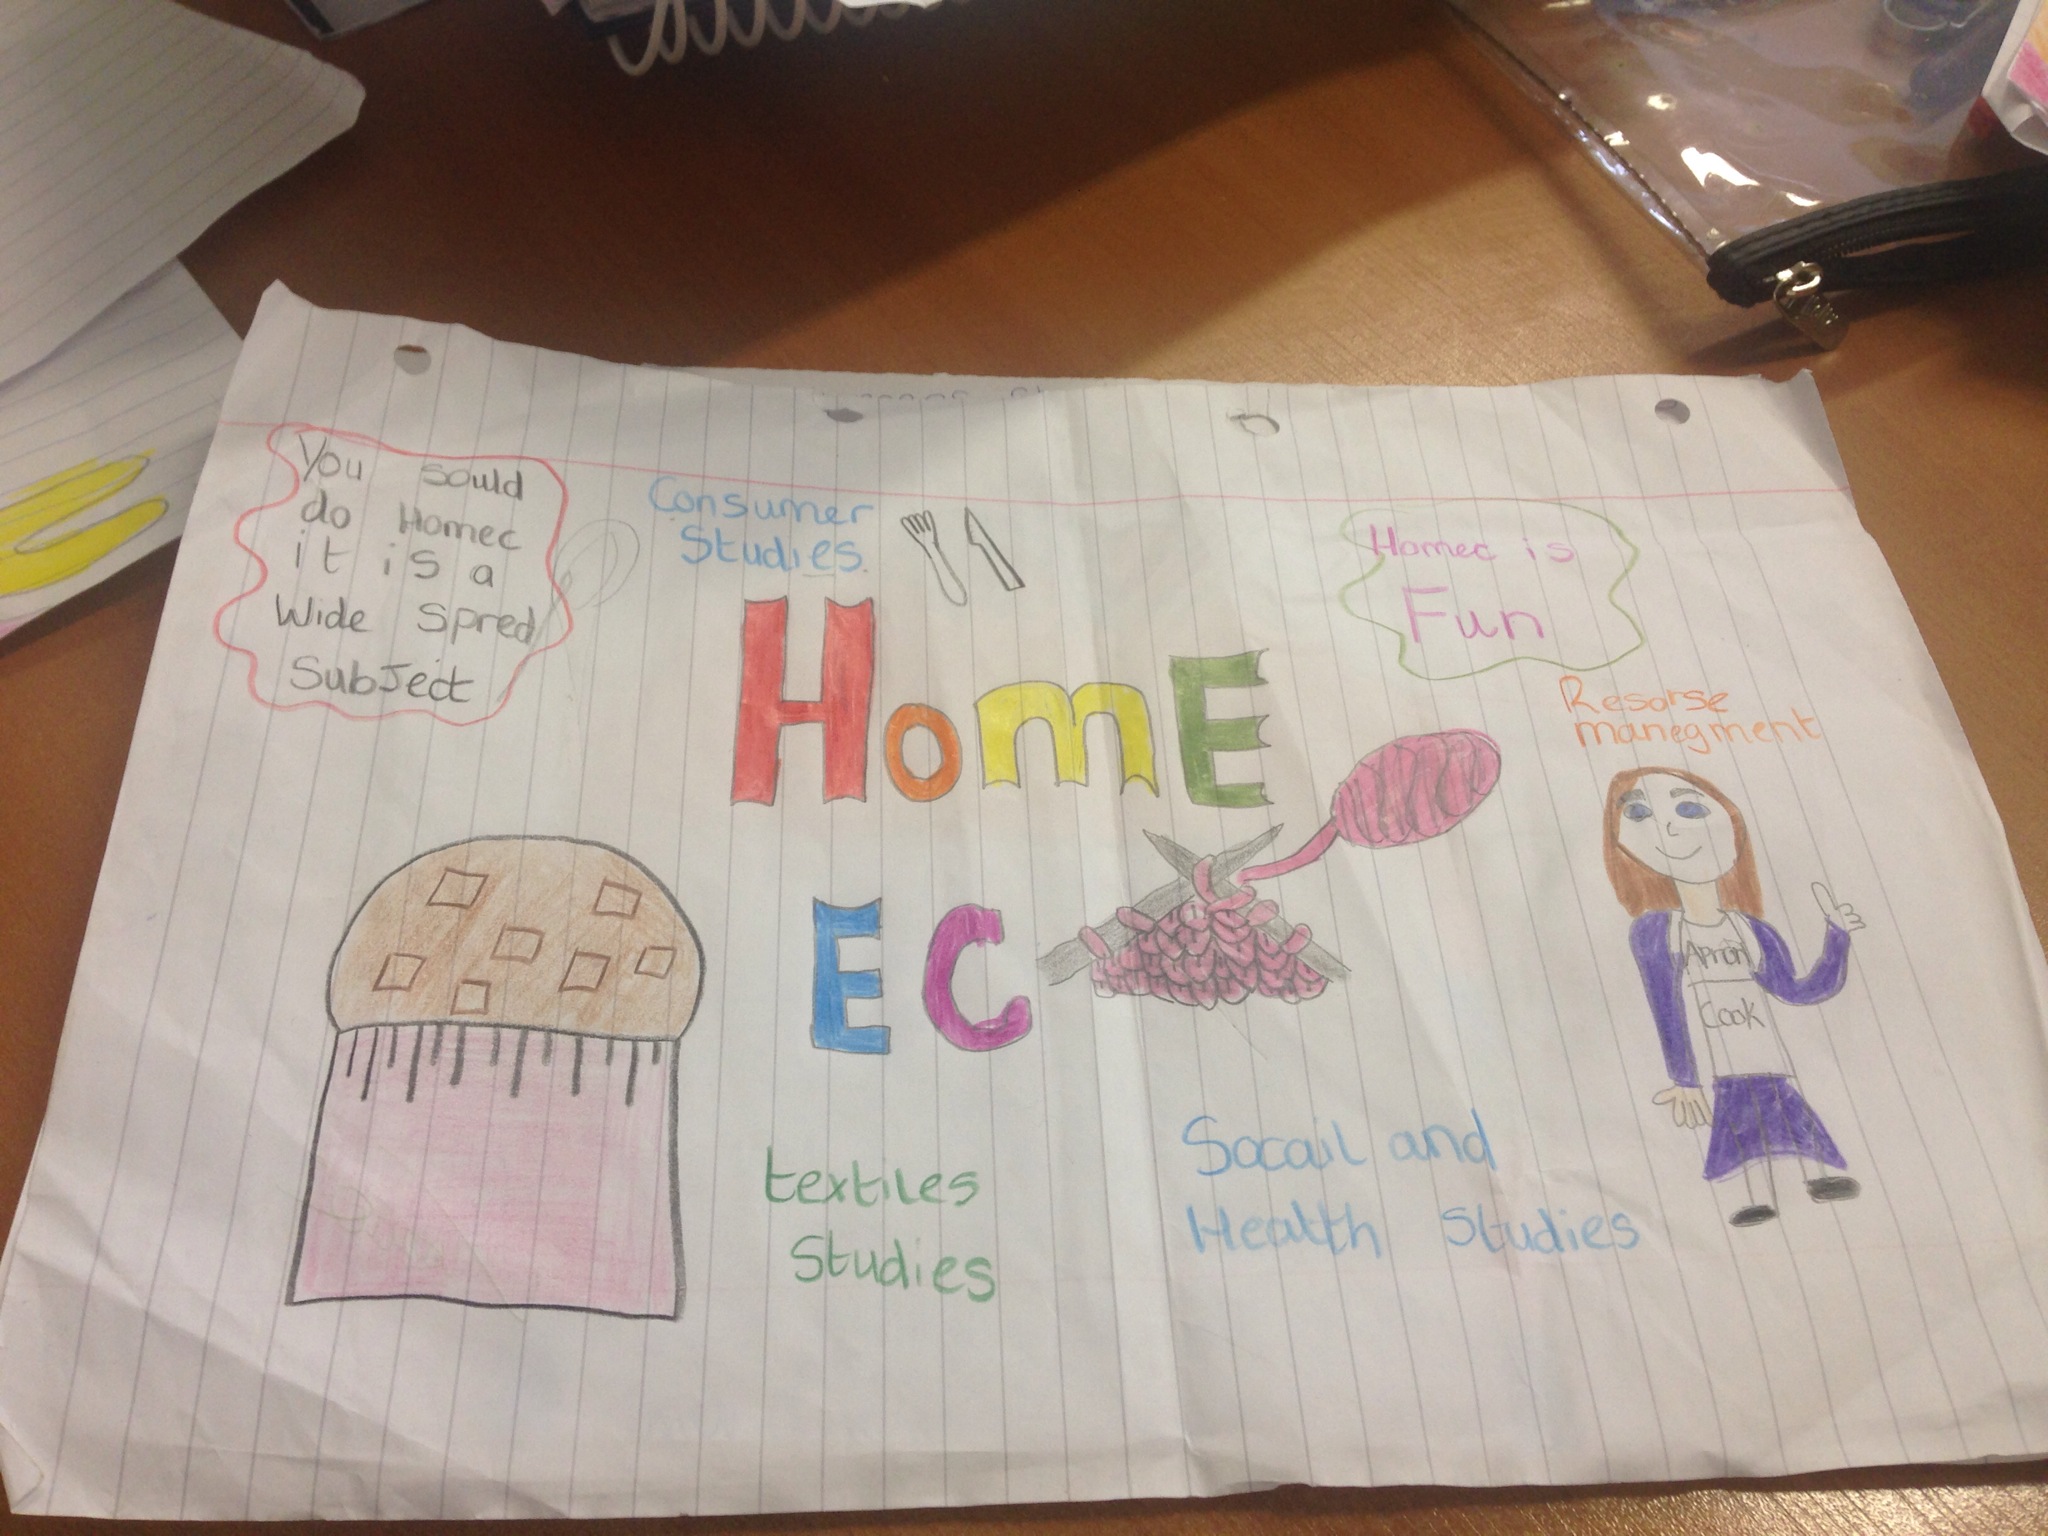 You sould
do Homec
it is a
Wide Spred
SubJect
Consumer
Studies.
Homec is
Fun
HomE
EC
Resorse
manegment
Apron
Cook
textiles
Studies
Socail and
Health Studies